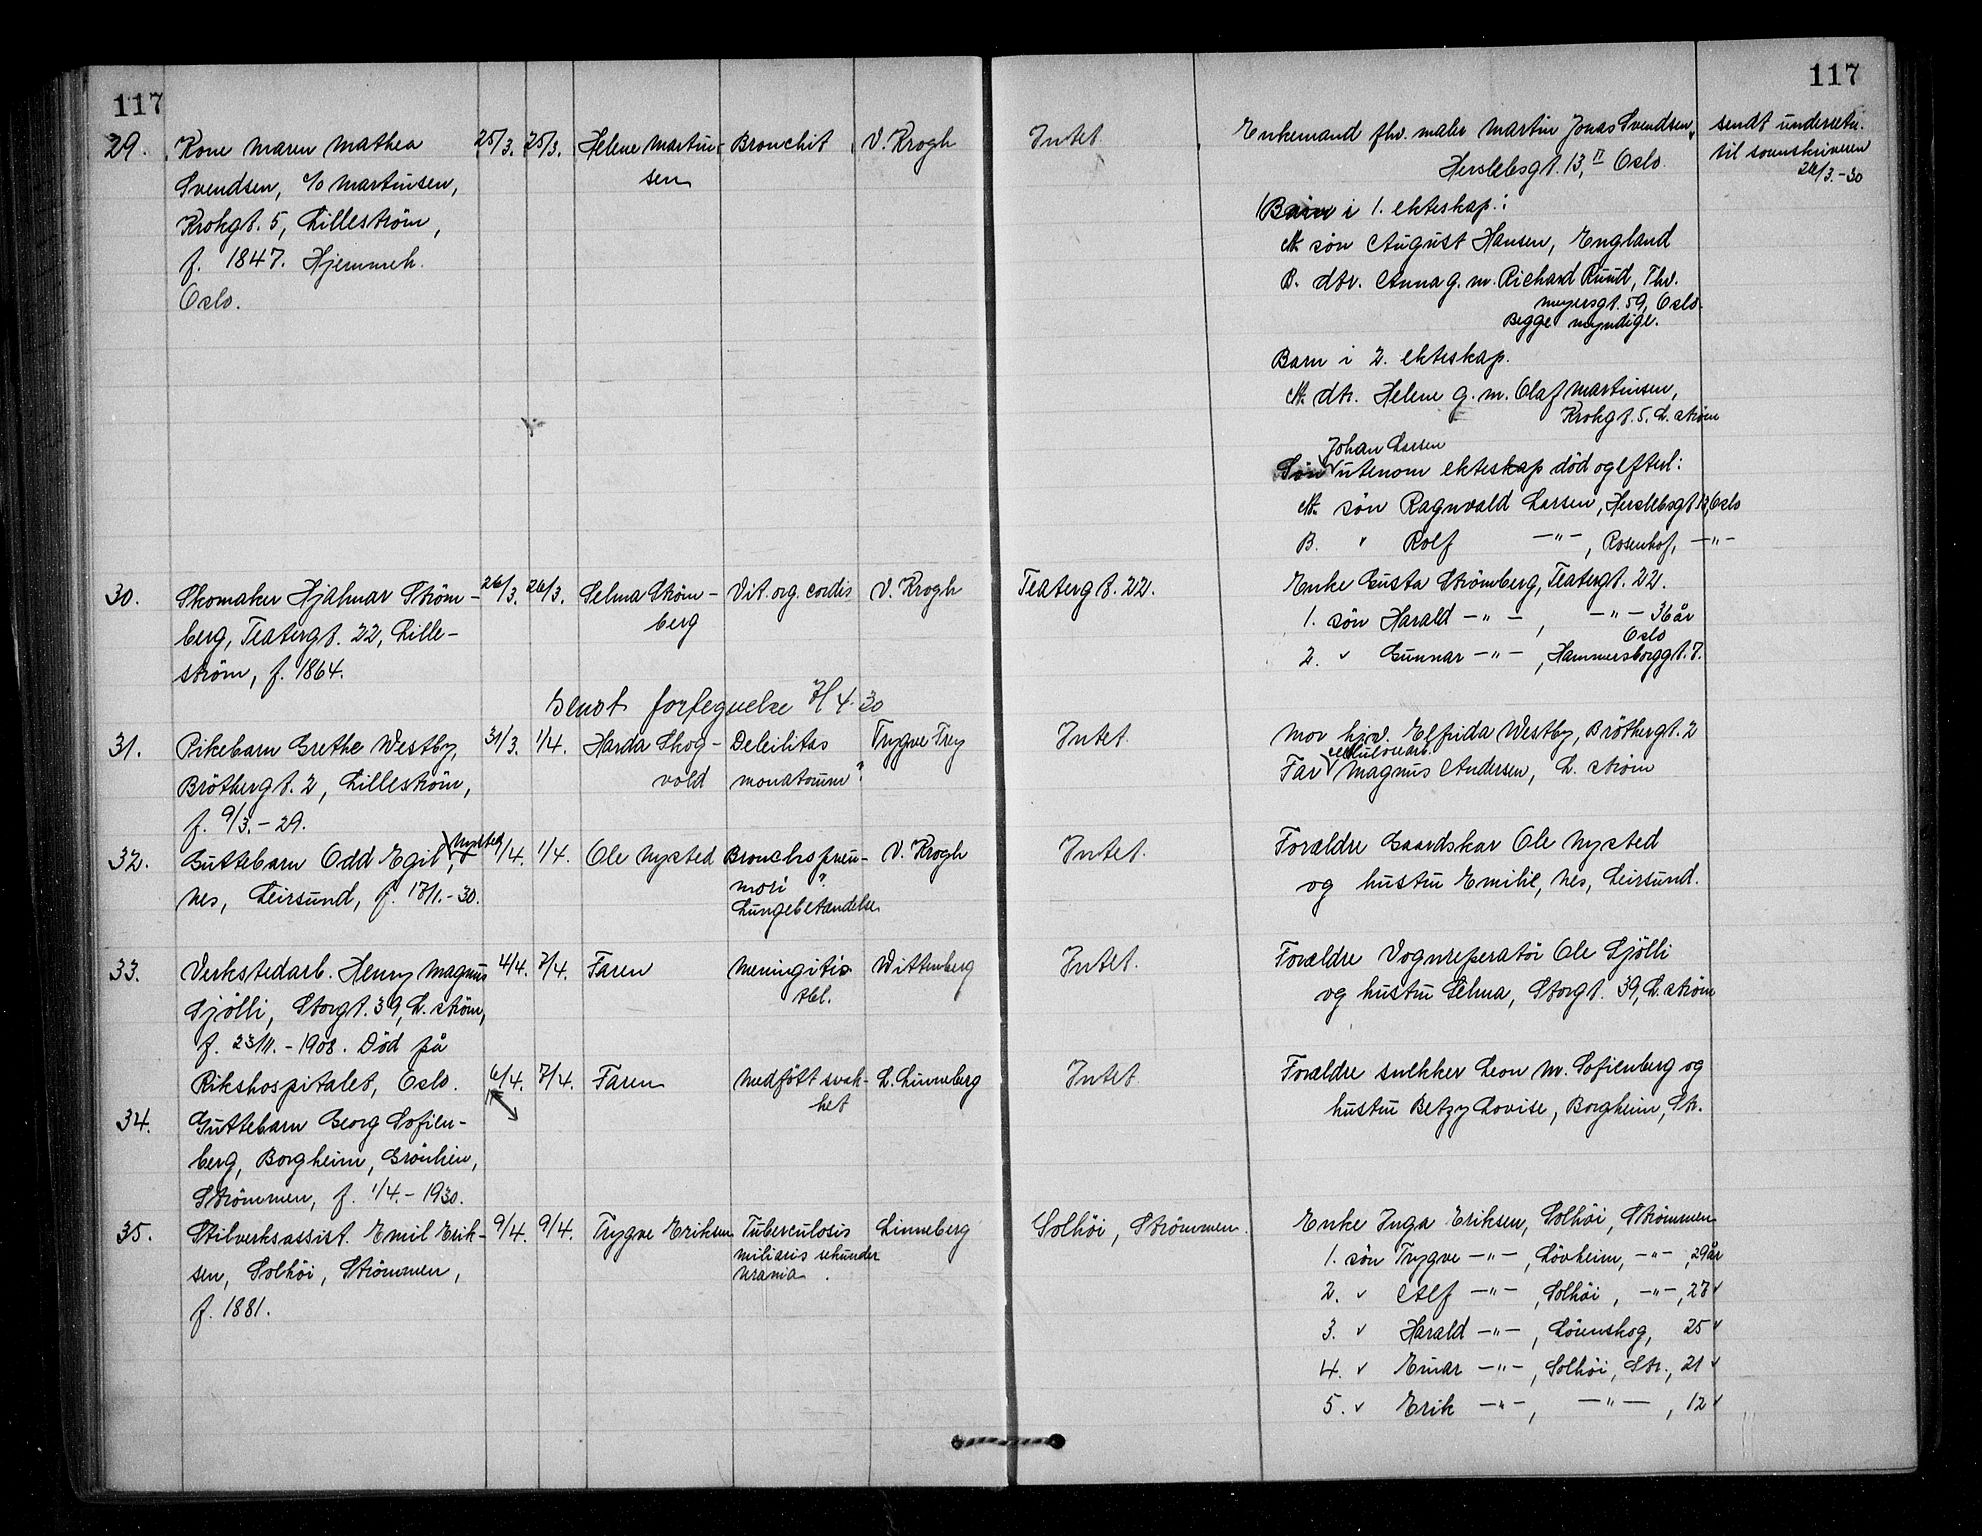 117
117
29. Kone Maren Mathea 25/3. 25/3. Helene Martin- Bronchit V. Krogh Intet
Svendsen, c/o Martinsen, sen
Krokgt. 5, Lilleström,
f. 1847. Hjemmeh.
Oslo.
Enkemand fhv. maler Martin Jonas Svendsen,
Herslebsgt. 13, II Oslo.
sendt underretn.
til sorenskriveren
28/3.-30
Barn i 1. ekteskap:
A. søn August Hansen, England
B. dtr. Anna g. m. Richard Ruud, Thv.
Meyersgt. 59, Oslo.
Begge myndige.
Barn i 2. ekteskap.
A. dtr. Helene g. m. Olaf Martinsen,
Krokgt. 5. L.ström
Johan Larsen
Søn utenom ekteskap död og efterl:
A. søn Ragnvald Larsen, Herslebsgt 13, Oslo
B. " Rolf —"—, Rosenhof, —"—
30. Skomaker Hjalmar Ström- 26/3. 26/3. Selma Ström- Vit. org. cordis V. Krogh Teatergt. 22.
berg, Teatergt. 22, Lille- berg
ström, f. 1864.
Enke Gusta Strömberg, Teatergt. 22.
1. søn Harald —"—, —"— 36 år
Oslo
2. " Gunnar —"—, Hammersborggt. 7.
Sendt forfegnelse 7/4. 30
31. Pikebarn Grethe Westby, 31/3. 1/4. Harda Skog- Debilitas Trygve Try Intet
Brötbergt. 2, Lilleström, vold monatorum?
f. 9/3.-29.
Mor hjv. Elfrida Westby, Brötbergt. 2
cellulosearb.
Far Magnus Andersen, L.ström
Nysted
32. Guttebarn Odd Egil, 1/4. 1/4. Ole Nysted Bronchopneu- V. Krogh Intet.
Nes, Leirsund, f. 17/1.-30. moni?
Lungebetændelse
Forældre Gaardskar Ole Nysted
og hustru Emilie, Nes, Leirsund.
33. Verkstedarb. Henry Magnus 4/4. 7/4. Faren Meningitis Wittenberg Intet.
Sjölli, Storgt. 39, L.ström, tbl.
f. 23/11.-1908. Död på
Rikshospitalet, Oslo.
Forældre Vognreperatör Ole Sjölli
og hustru Selma, Storgt. 39, L.ström
6/4. 7/4. Faren Medfött svak- L. Linneberg Intet
het
34. Guttebarn Georg Sofien-
berg, Borgheim, Grönlien,
Strömmen, f. 1/4.-1930.
Forældre snekker Leon M. Sofienberg og
hustru Betzy Lovise, Borgheim, Str.
35. Stilverksassist. Emil Erik- 9/4. 9/4. Trygve Eriksen Tuberculosis Linneberg Solhöi, Strömmen.
sen, Solhöi, Strömmen, miliaris sekunder
f. 1881. Urania.
Enke Inga Eriksen, Solhöi, Strömmen
1. søn Trygve —"—, Lövheim, —"—, 29 år
2. " Alf —"—, Solhöi, —"—, 27 "
3. " Harald —"—, Lörenskog, 25 "
4. " Einar —"—, Solhöi, Str., 21 "
5. " Erik —"—, —"—, 12 "